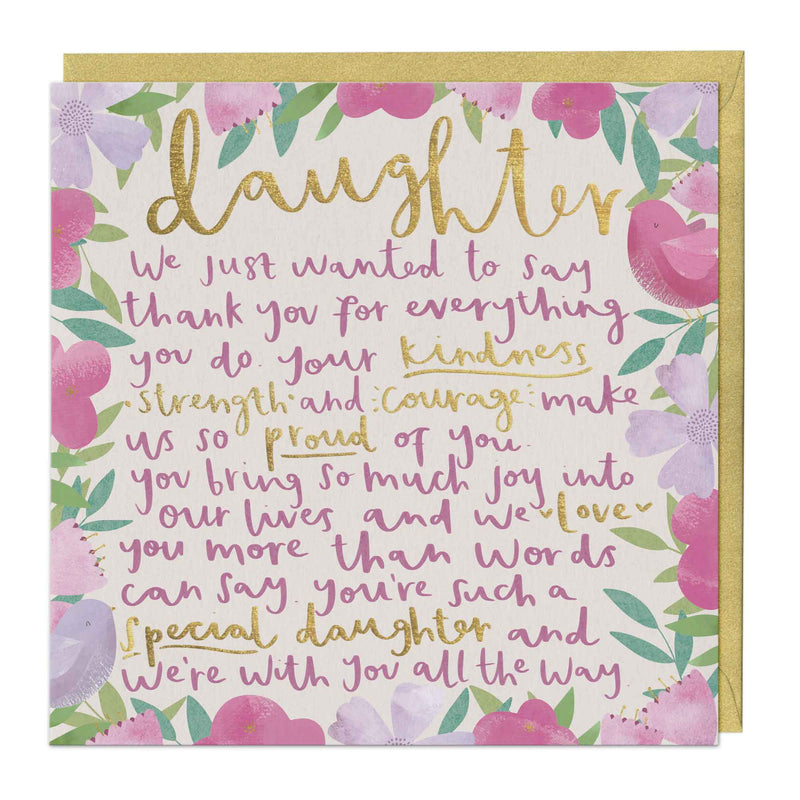 daughter
We just wanted to say
thank you for everything
you do. your kindness
strength and courage make
us so proud of you.
you bring so much joy into
our lives and we love
you more than words
can say you're such a
special daughter and
we're with you all the way.